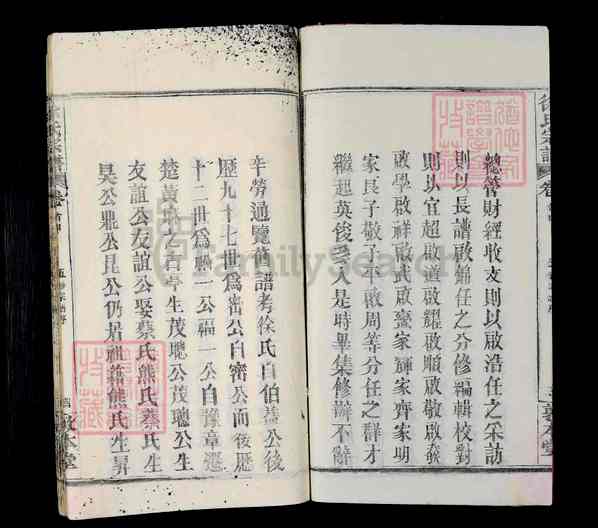 總管財經收支則以啟浩任之采訪
則以長譜啟錦任之分修編輯校對
則以宜超啟道啟耀啟順啟敬啟發
啟學啟祥啟武啟鑾家輝家齊家明
家良子敬子平啟周等分任之群才
繼起英俊 人是時畢集修辦不辭
辛勞通覽舊譜考徐氏自伯益公後
歷九十七世爲密公自密公而後歷
十二世爲 一公福一公自豫章遷
楚黃麻之古亭生茂聰公茂聰公生
友誼公友誼公娶蔡氏熊氏蔡氏生
昊公鼎公昆公仍居祖籍熊氏生昇
徐氏宗譜
卷
敦本堂
敦本堂
FamilySearch